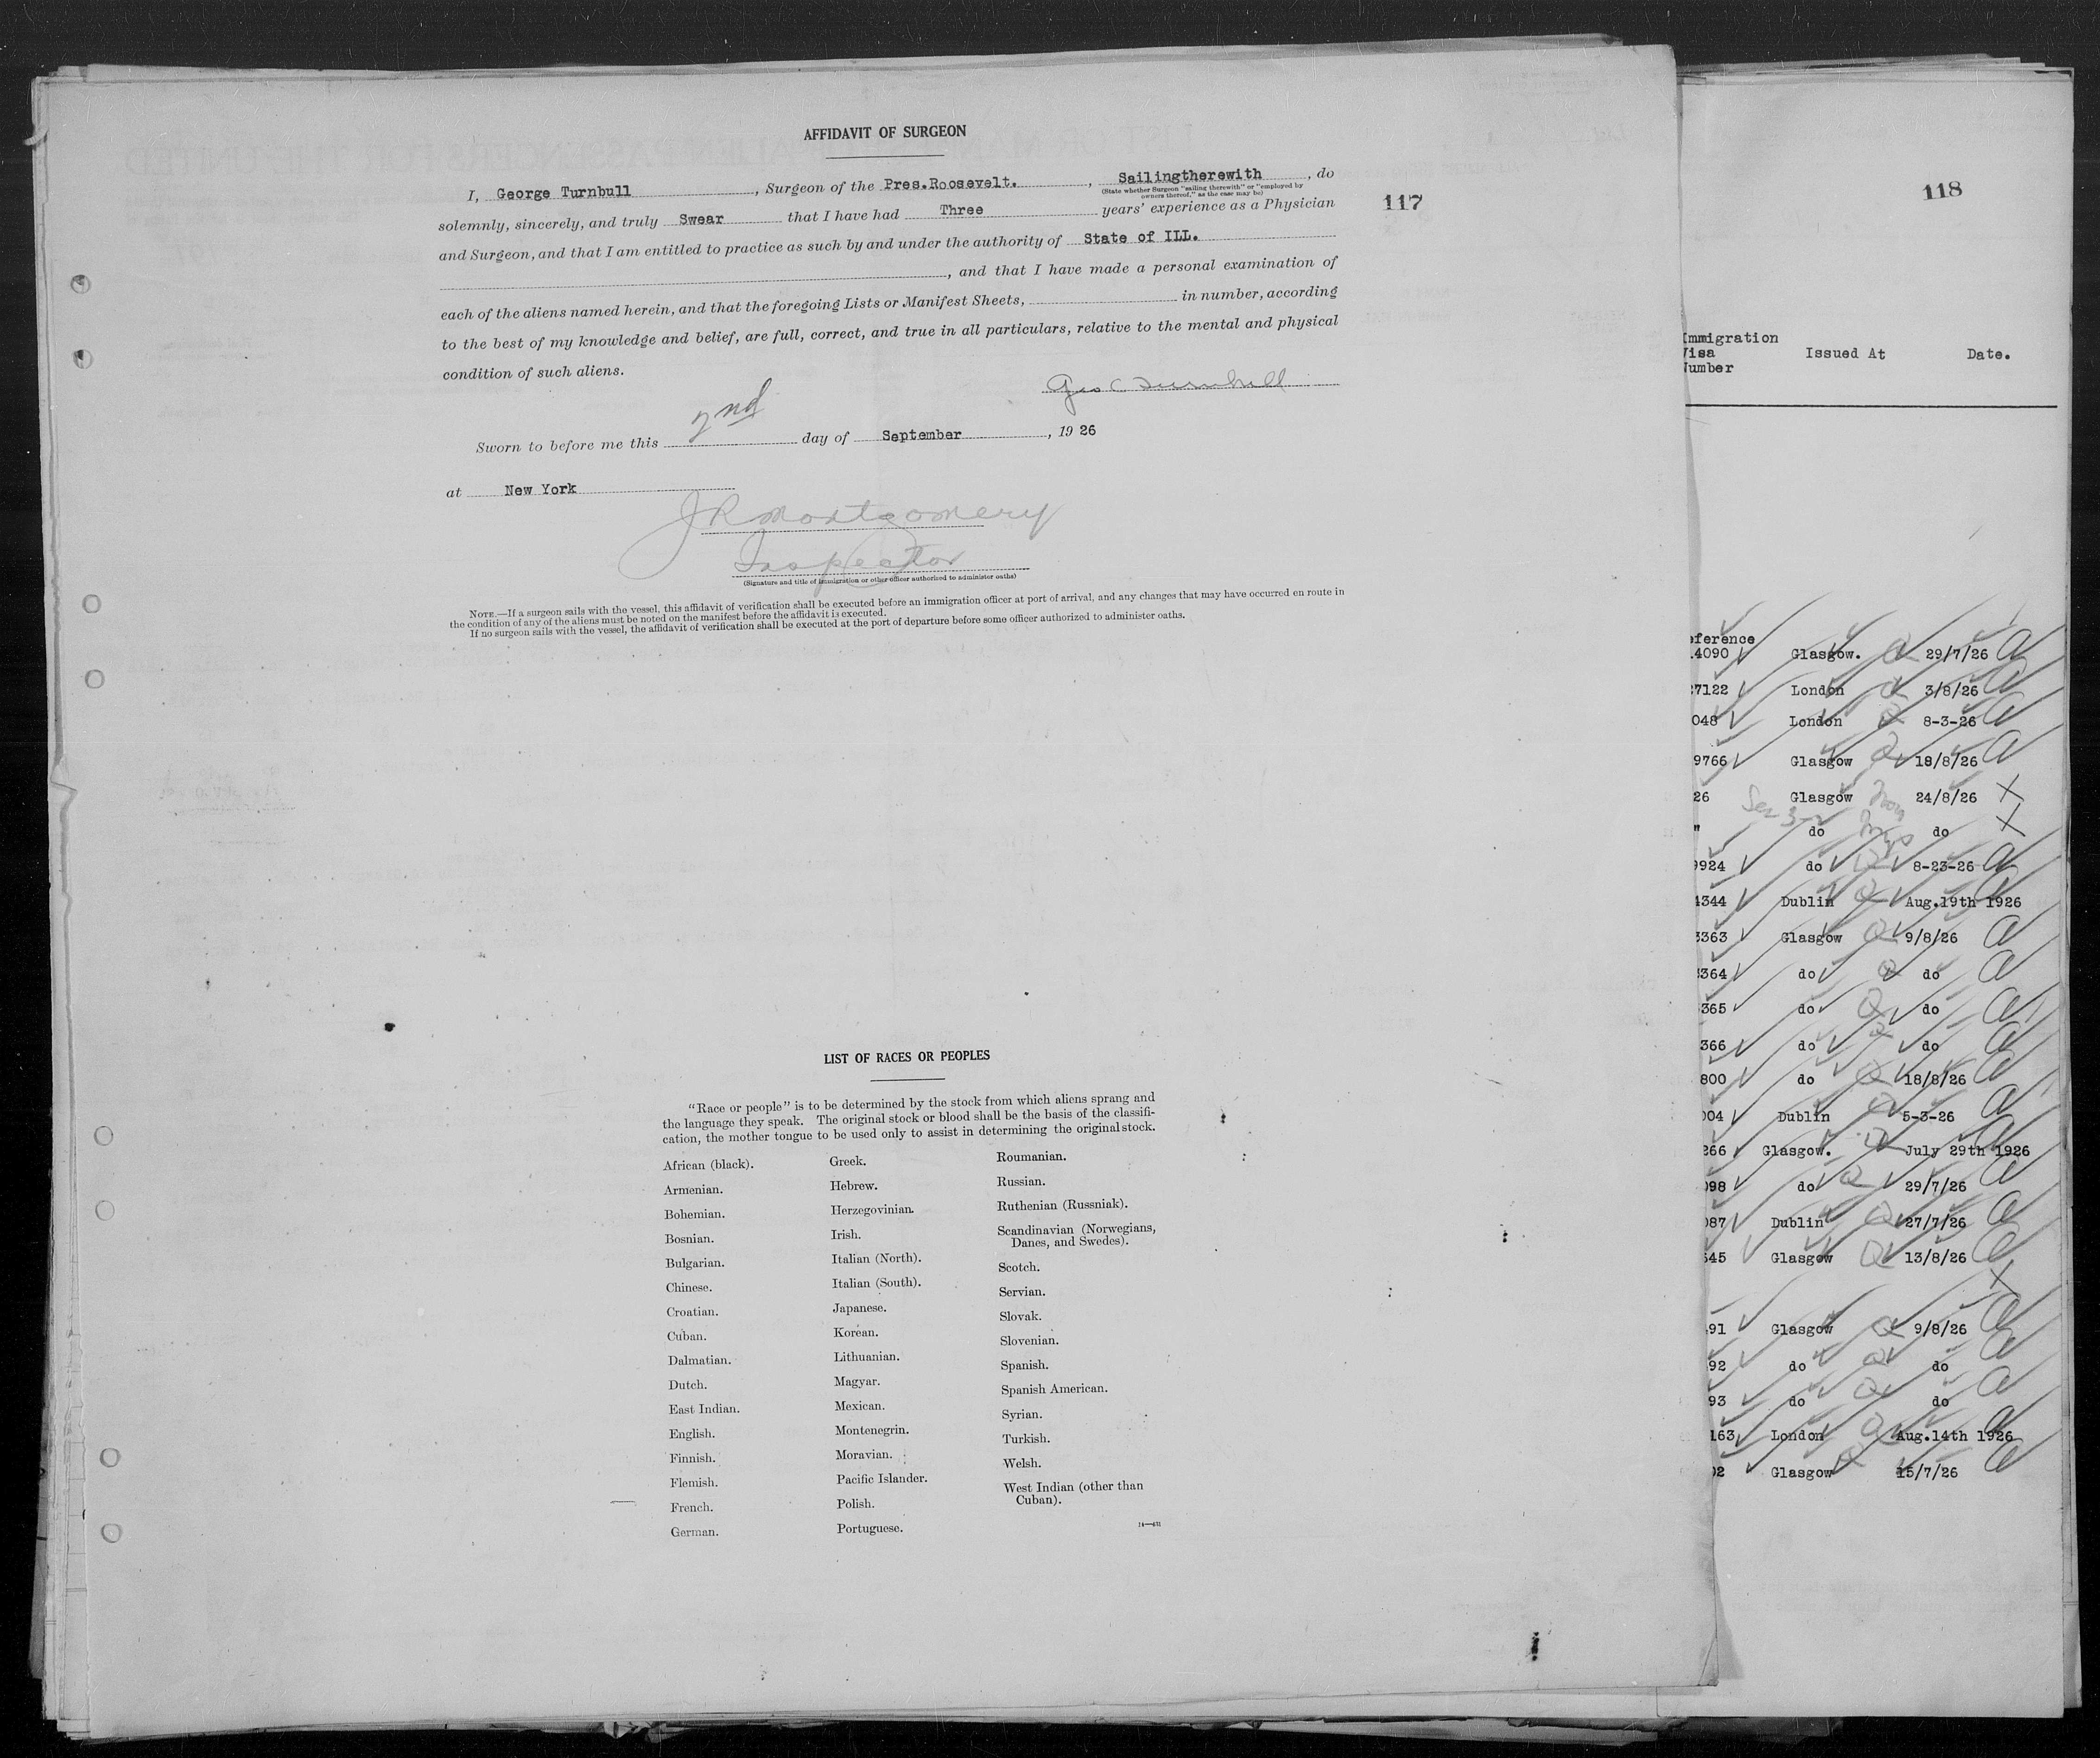 AFFIDAVIT OF SURGEON
I, George Turnbull, Surgeon of the Pres.Roosevelt., Sailingtherewith, do
(State whether Surgeon "sailing therewith" or "employed by
owners thereof," as the case may be)
solemnly, sincerely, and truly Swear that I have had Three years' experience as a Physician
and Surgeon, and that I am entitled to practice as such by and under the authority of State of ILL.
, and that I have made a personal examination of
each of the aliens named herein, and that the foregoing Lists or Manifest Sheets, in number, according
to the best of my knowledge and belief, are full, correct, and true in all particulars, relative to the mental and physical
condition of such aliens.
Geo C Turnbull
Sworn to before me this 2nd day of September, 19 26
at New York
J R Montgomery
Inspector
(Signature and title of immigration or other officer authorized to administer oaths)
NOTE.—If a surgeon sails with the vessel, this affidavit of verification shall be executed before an immigration officer at port of arrival, and any changes that may have occurred en route in
the condition of any of the aliens must be noted on the manifest before the affidavit is executed.
If no surgeon sails with the vessel, the affidavit of verification shall be executed at the port of departure before some officer authorized to administer oaths.
117
LIST OF RACES OR PEOPLES
"Race or people" is to be determined by the stock from which aliens sprang and
the language they speak. The original stock or blood shall be the basis of the classifi-
cation, the mother tongue to be used only to assist in determining the original stock.
African (black).
Armenian.
Bohemian.
Bosnian.
Bulgarian.
Chinese.
Croatian.
Cuban.
Dalmatian.
Dutch.
East Indian.
English.
Finnish.
Flemish.
French.
German.
Greek.
Hebrew.
Herzegovinian.
Irish.
Italian (North).
Italian (South).
Japanese.
Korean.
Lithuanian.
Magyar.
Mexican.
Montenegrin.
Moravian.
Pacific Islander.
Polish.
Portuguese.
Roumanian.
Russian.
Ruthenian (Russniak).
Scandinavian (Norwegians,
Danes, and Swedes).
Scotch.
Servian.
Slovak.
Slovenian.
Spanish.
Spanish American.
Syrian.
Turkish.
Welsh.
West Indian (other than
Cuban).
118
Immigration
Visa Issued At Date.
Number
eference
4090 Glasgow. 29/7/26 a
7122 London 3/8/26 a
048 London 8-3-26 a
9766 Glasgow 18/8/26 a
26 Glasgow 24/8/26 X
" do do X
9924 do 8-23-26 a
4344 Dublin Aug.19th 1926
3363 Glasgow 9/8/26 a
364 do do a
365 do do a
366 do do a
800 do 18/8/26 a
004 Dublin 5-3-26 a
266 Glasgow. July 29th 1926
098 do 29/7/26 a
087 Dublin 27/7/26 a
545 Glasgow 13/8/26 a
X
91 Glasgow 9/8/26 a
92 do do a
93 do do a
163 London Aug.14th 1926
02 Glasgow 15/7/26 a